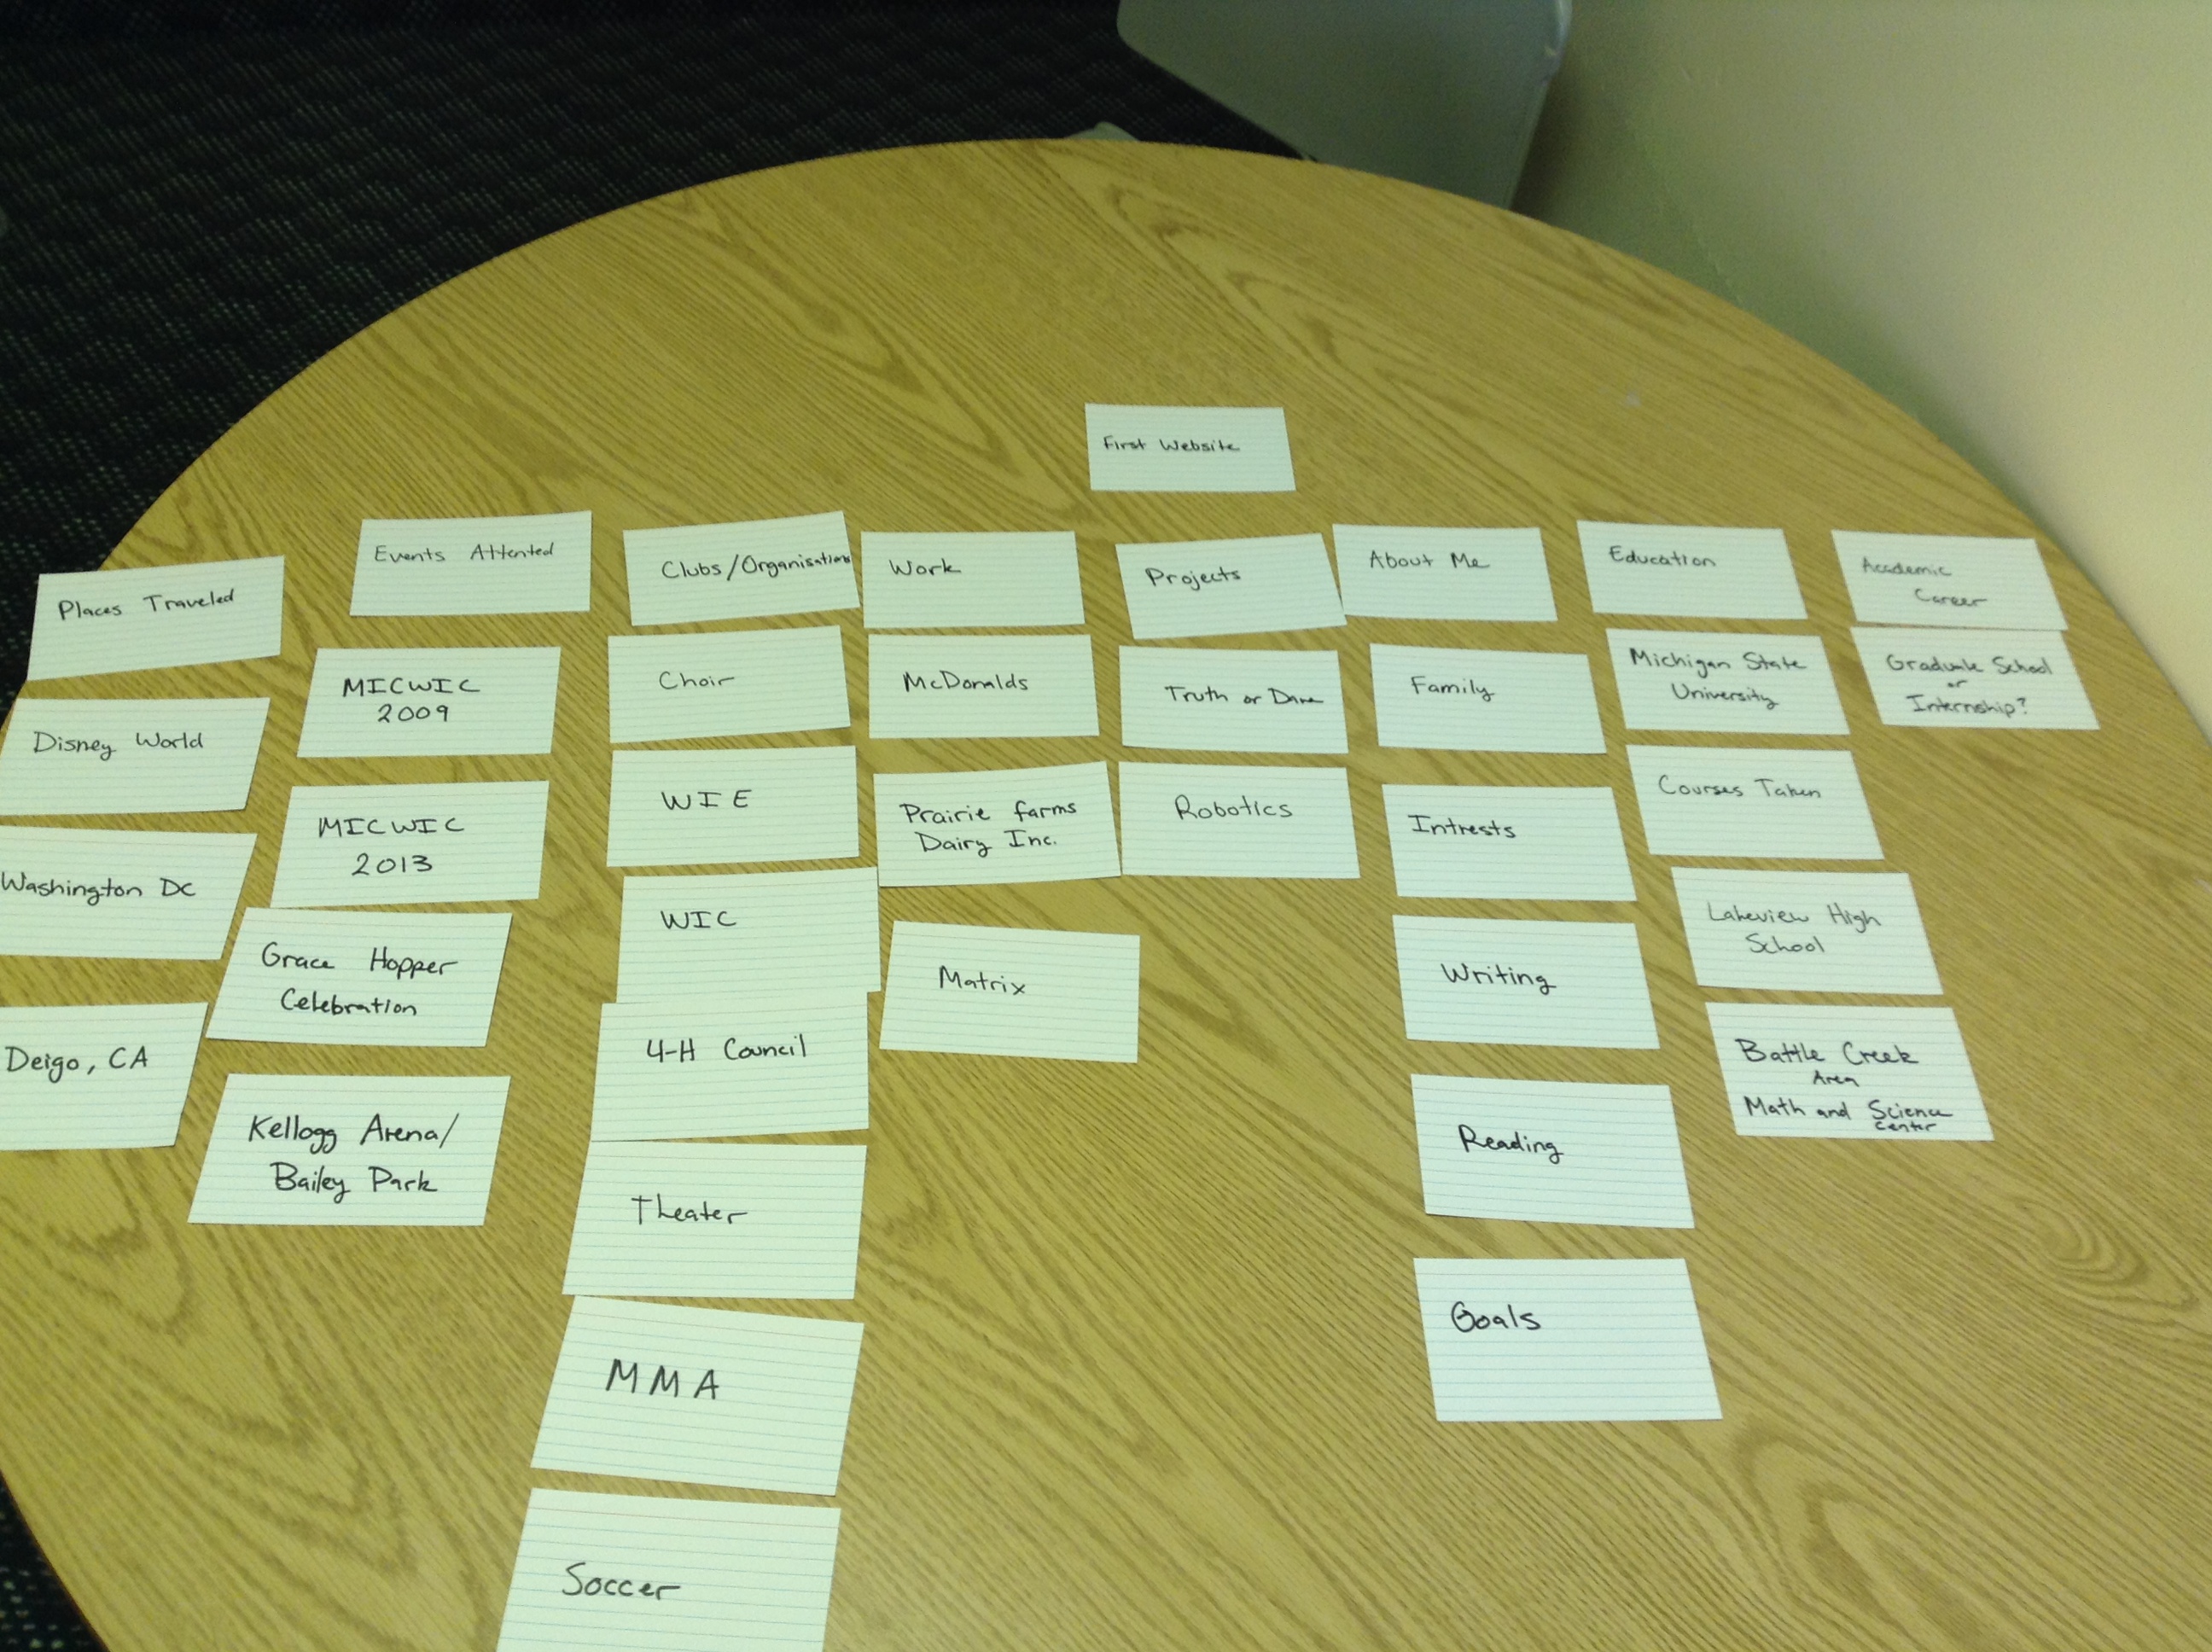 First Website
Places Traveled
Disney World
Washington DC
Deigo, CA
Events Attented
MICWIC
2009
MICWIC
2013
Grace Hopper
Celebration
Kellogg Arena/
Bailey Park
Clubs/Organisations
Choir
WIE
WIC
4-H Council
Theater
MMA
Soccer
Work
McDonalds
Prairie farms
Dairy Inc.
Matrix
Projects
Truth or Dare
Robotics
About Me
Family
Intrests
Writing
Reading
Goals
Education
Michigan State
University
Courses Taken
Lakeview High
School
Battle Creek
Area
Math and Science
Center
Academic
Career
Graduate School
or
Internship?